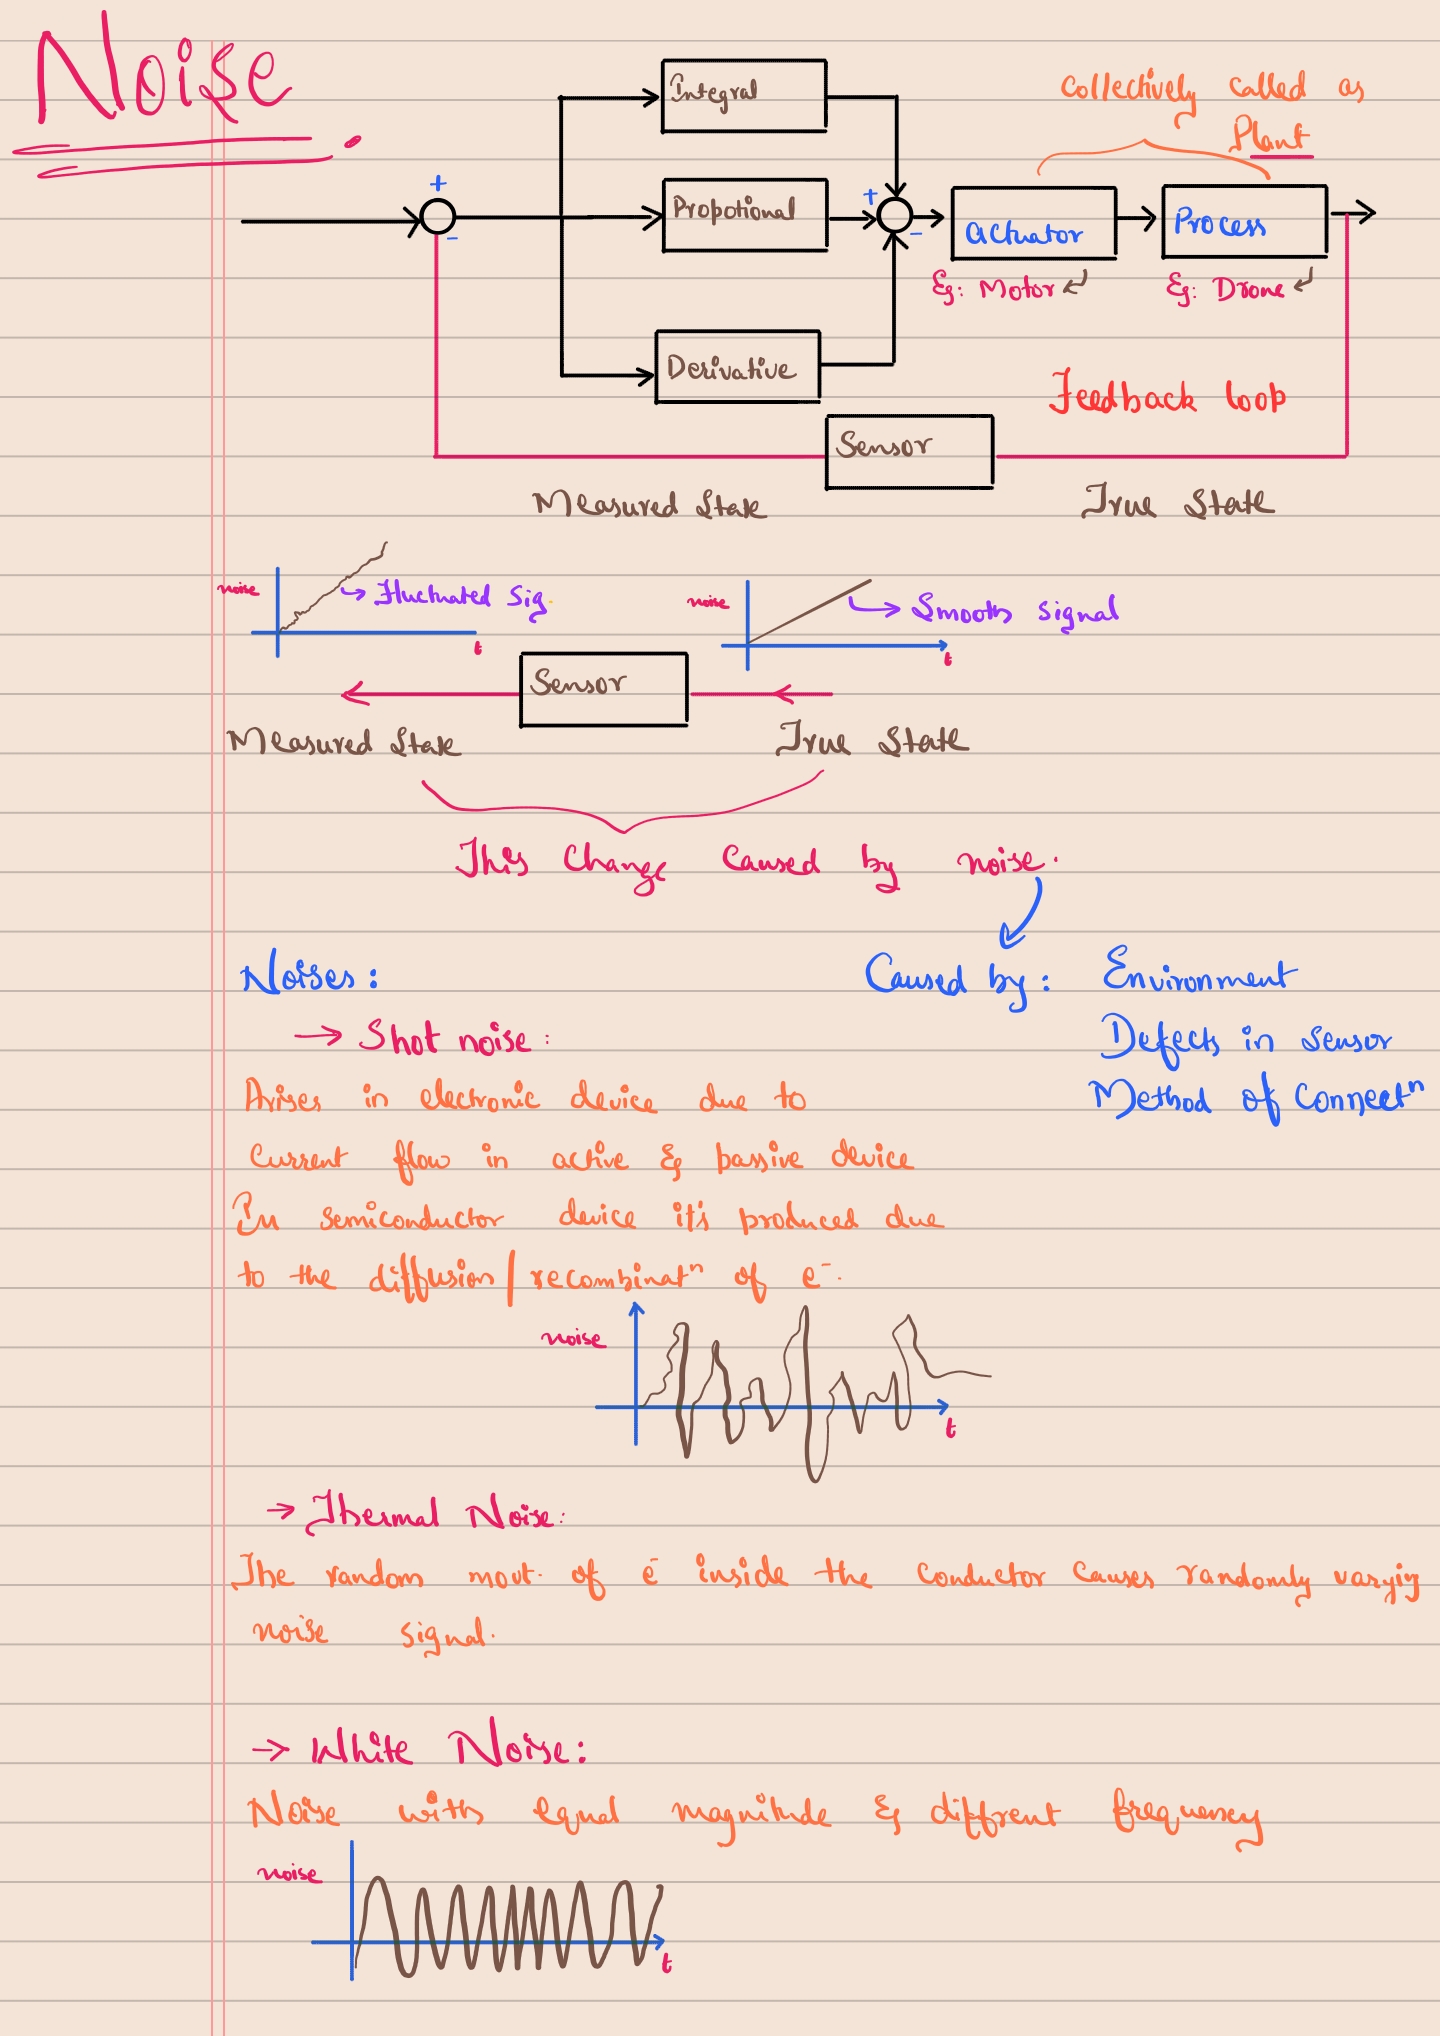 Noise.
Integral
Collectively called as
Plant
+
Propotional
+
-
-
Actuator
Process
Eg: Motor
Eg: Drone
Derivative
Feedback loop
Sensor
Measured State
True State
noise
Fluctuated Sig.
t
noise
Smooth signal
t
Sensor
Measured State
True State
This Change Caused by noise.
Noises:
Caused by: Environment
→ Shot noise:
Defects in Sensor
Arises in electronic device due to
Method of Connectⁿ
Current flow in active & passive device
In semiconductor device it's produced due
to the diffusion/recombinatⁿ of e⁻.
noise
t
→ Thermal Noise:
The random movt. of e⁻ inside the conductor causes randomly varying
noise signal.
→ White Noise:
Noise with equal magnitude & diffrent frequency
noise
t